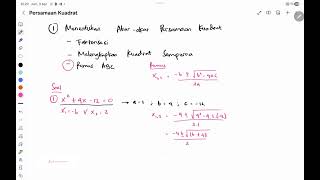 Persamaan Kuadrat
① Menentukan Akar-akar Persamaan Kuadrat
- Faktorisasi
- Melengkapkan Kuadrat Sempurna
- Rumus ABC
Rumus
x₁,₂ = -b ± √b² - 4ac / 2a
Soal
① x² + 4x - 12 = 0 → a = 1 ; b = 4 ; c = -12
x₁ = -6 v x₂ = 2
x₁,₂ = -4 ± √4² - 4·1·(-12) / 2·1
= -4 ± √16 + 48 / 2